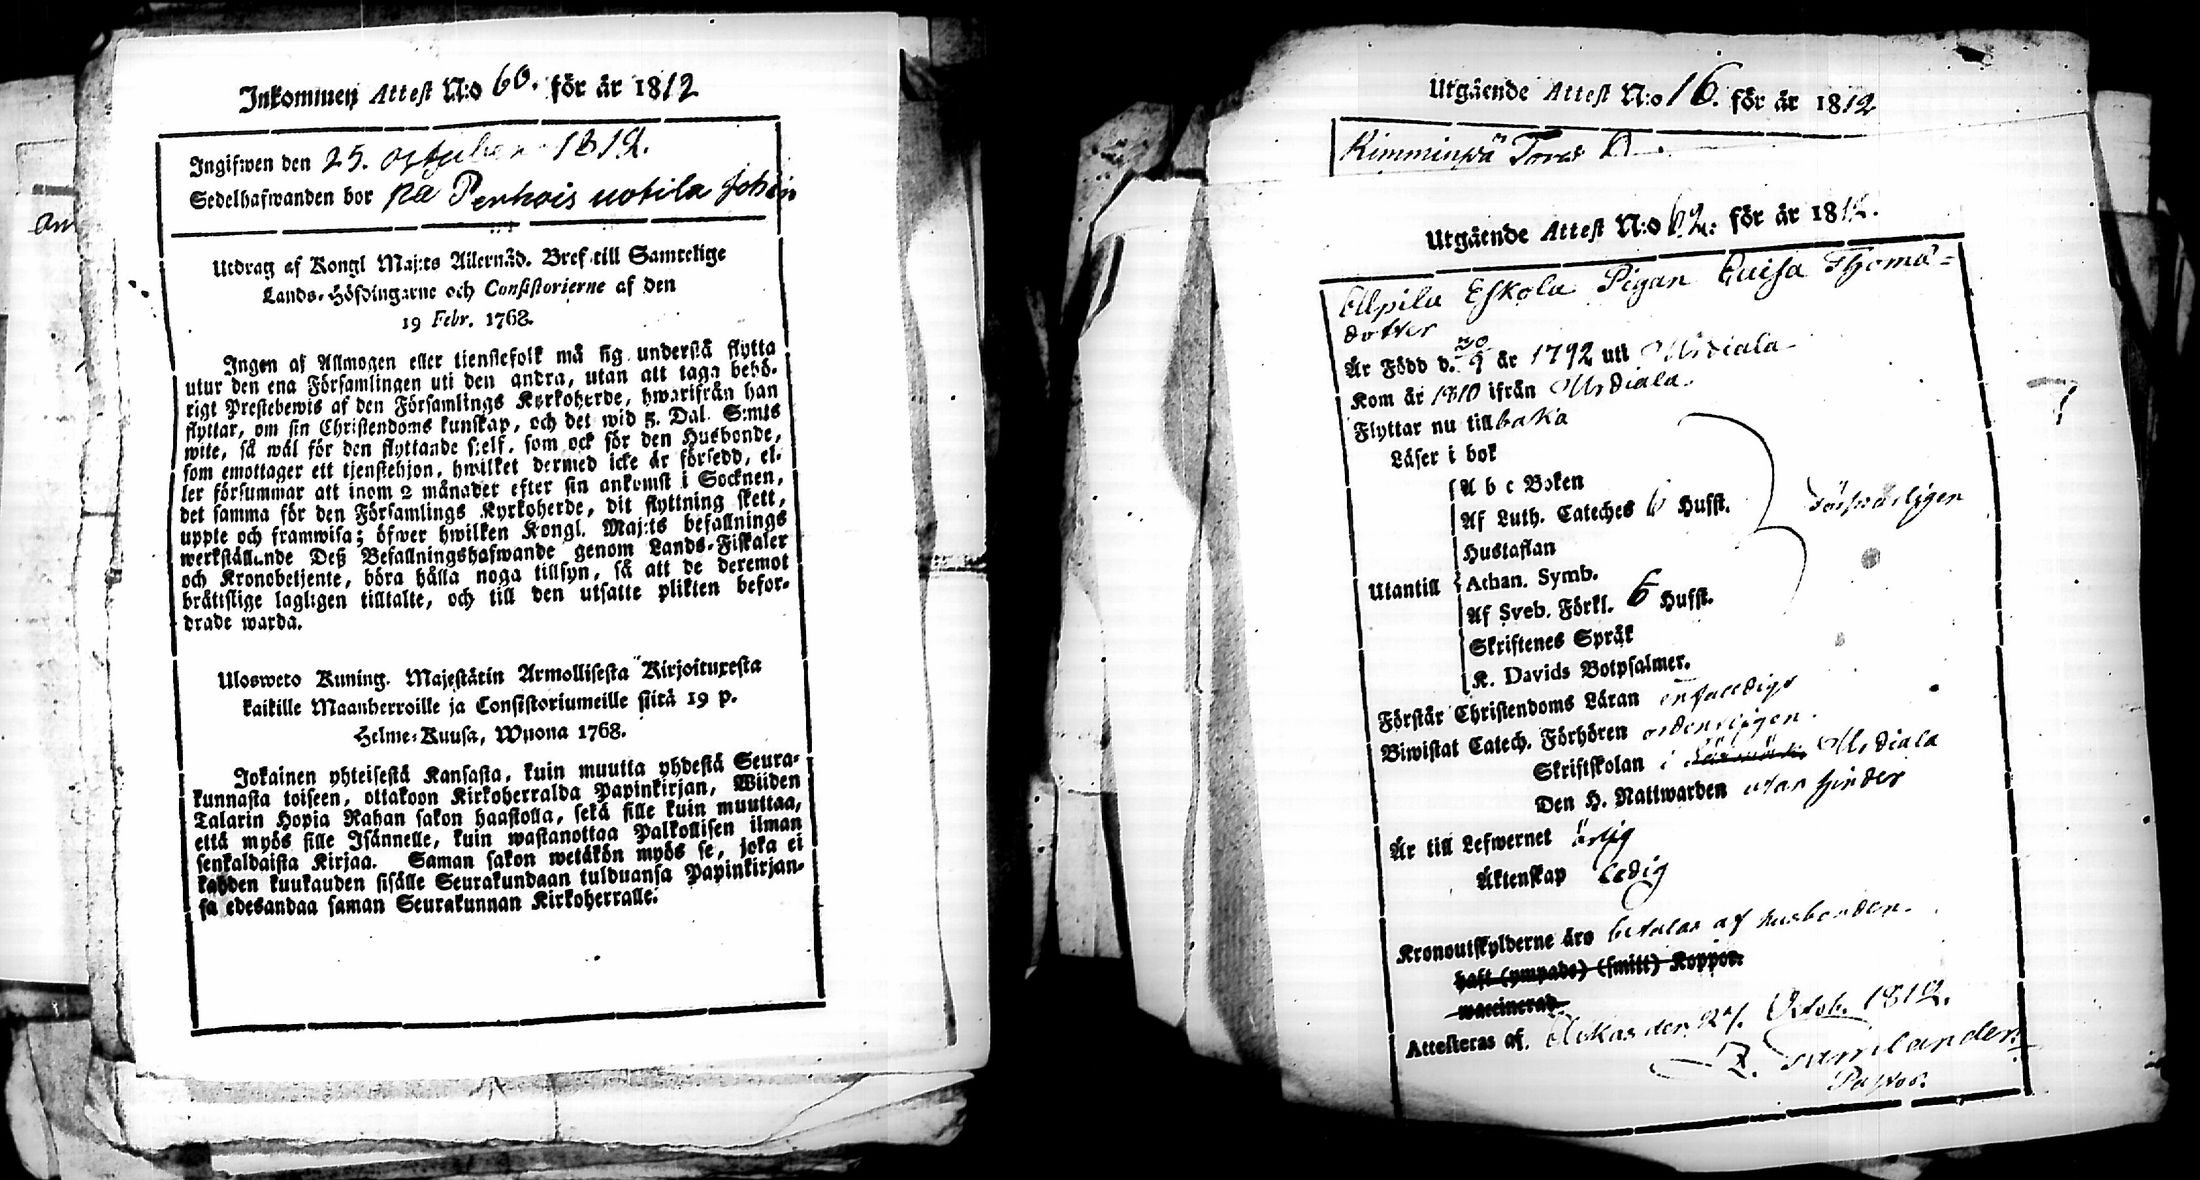 Inkommen Attest N:o 60. för år 1812
Ingifwen den 25. october 1812.
Sedelhafwanden bor på Perhois uotila Johan
Utdrag af Kongl Maj:ts Allernåd. Bref till Samtelige
Lands-Höfdingarne och Consistorierne af den
19 Febr. 1768.
Ingen af Allmogen eller tienstefolk må sig understå flytta
utur den ena Församlingen uti den andra, utan att taga behö-
rigt Prestebewis af den Församlings Kyrkoherde, hwarifrån han
flyttar, om sin Christendoms kunskap, och det wid 5. Dal. S:mts
wite, så wäl för den flyttande sielf, som ock för den Husbonde,
som emottager ett tjenstehjon, hwilket dermed icke är försedd, el-
ler försummar att inom 2 månader efter sin ankomst i Socknen,
det samma för den Församlings Kyrkoherde, dit flyttning skett,
uppte och framwisa; öfwer hwilken Kongl. Maj:ts befallnings
werkställande Deß Befallningshafwande genom Lands-Fiskaler
och Kronobetjente, böra hålla noga tillsyn, så att de deremot
bråttslige lagligen tilltalte, och till den utsatte plikten befor-
drade warda.
Ulosweto Kuning. Majestätin Armollisesta Kirjoituxesta
kaikille Maanherroille ja Consistoriumeille siitä 19 p.
Helme-Kuusa, Wuona 1768.
Jokainen yhteisestä Kansasta, kuin muutta yhdestä Seura-
kunnasta toiseen, ottakoon Kirkoherralda Papinkirjan, Wiiden
Talarin Hopia Rahan sakon haastolla, sekä sille kuin muuttaa,
että myös sille Isännelle, kuin wastanottaa Palkollisen ilman
senkaldaista Kirjaa. Saman sakon wetäkön myös se, joka ei
kahden kuukauden sisälle Seurakundaan tulduansa Papinkirjan-
sa edesandaa saman Seurakunnan Kirkoherralle.
Utgående Attest N:o 16. för år 1812
Utgående Attest N:o 62. för år 1812.
Eskola Pigan Caisa Thoma=
dotter
Är Född d. 30/9 år 1792 uti Urdiala
Kom år 1810 ifrån Urdiala.
Flyttar nu tillbaka
Läser i bok
A b c Boken
Af Luth. Cateches 6 Husst.
Hustaflan
Utantill Athan. Symb.
Af Sveb. Förkl. 6 Husst.
Skriftenes Språk
K. Davids Botpsalmer.
försvarligen
Förstår Christendoms Läran enfalldigt
Biwistat Catech. Förhören ordenteligen.
Skriftskolan i Urdiala
Den H. Nattwarden utan hinder
Är till Lefwernet ärlig
Äktenskap Ledig
Kronoutskylderne äro betalas af husbonden.
haft (ympade) (smitt) Koppor.
waccinerad
Attesteras af, den 27. Octob. 1812.
Pastor.